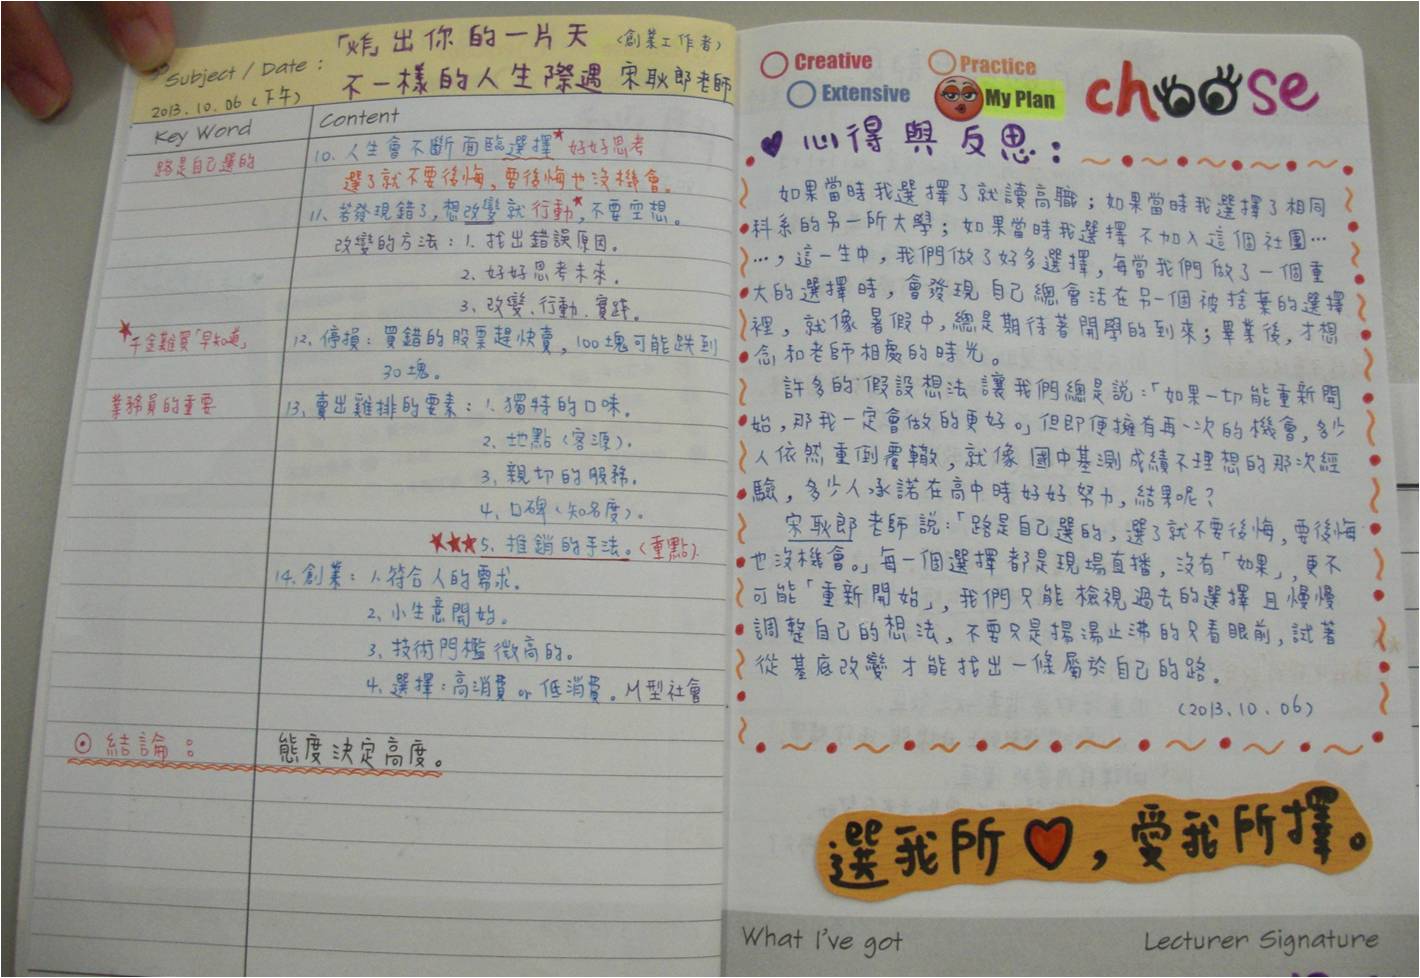 「炸」出你的一片天 （創業工作者）
Subject / Date： 不一樣的人生際遇 宋耿郎老師
2013.10.06（下午）
Key Word Content
路是自己選的 10. 人生會不斷面臨選擇★ 好好思考
選了就不要後悔，要後悔也沒機會。
11. 若發現錯了，想改變就行動★，不要空想。
改變的方法：1. 找出錯誤原因。
2. 好好思考未來。
3. 改變、行動、實踐。
★千金難買「早知道」 12. 停損：買錯的股票趕快賣，100塊可能跌到
30塊。
業務員的重要 13. 賣出雞排的要素：1. 獨特的口味。
2. 地點（客源）。
3. 親切的服務。
4. 口碑（知名度）。
★★★5. 推銷的手法。（重點）
14. 創業：1. 符合人的需求。
2. 小生意開始。
3. 技術門檻微高的。
4. 選擇：高消費 or 低消費。M型社會
⊙ 結論： 態度決定高度。
Creative Practice
Extensive My Plan
choose
♥心得與反思：
如果當時我選擇了就讀高職；如果當時我選擇了相同
科系的另一所大學；如果當時我選擇不加入這個社團…
…，這一生中，我們做了好多選擇，每當我們做了一個重
大的選擇時，會發現自己總會活在另一個被捨棄的選擇
裡，就像暑假中，總是期待著開學的到來；畢業後，才想
念和老師相處的時光。
許多的假設想法讓我們總是說：「如果一切能重新開
始，那我一定會做的更好。」但即便擁有再一次的機會，多少
人依然重倒覆轍，就像國中基測成績不理想的那次經
驗，多少人承諾在高中時好好努力，結果呢？
宋耿郎老師說：「路是自己選的，選了就不要後悔，要後悔
也沒機會。」每一個選擇都是現場直播，沒有「如果」，更不
可能「重新開始」，我們只能檢視過去的選擇且慢慢
調整自己的想法，不要只是揚湯止沸的只看眼前，試著
從基底改變才能找出一條屬於自己的路。
（2013.10.06）
選我所♥，愛我所擇。
What I've got Lecturer Signature